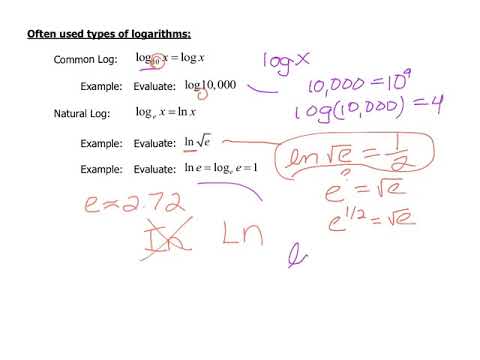 Often used types of logarithms:
Common Log: log₁₀ x = log x
log x
Example: Evaluate: log 10,000
10,000 = 10⁴
log(10,000) = 4
Natural Log: logₑ x = ln x
Example: Evaluate: ln √e
ln √e = 1/2
Example: Evaluate: ln e = logₑ e = 1
e^? = √e
e ≈ 2.72
e^1/2 = √e
In Ln
l